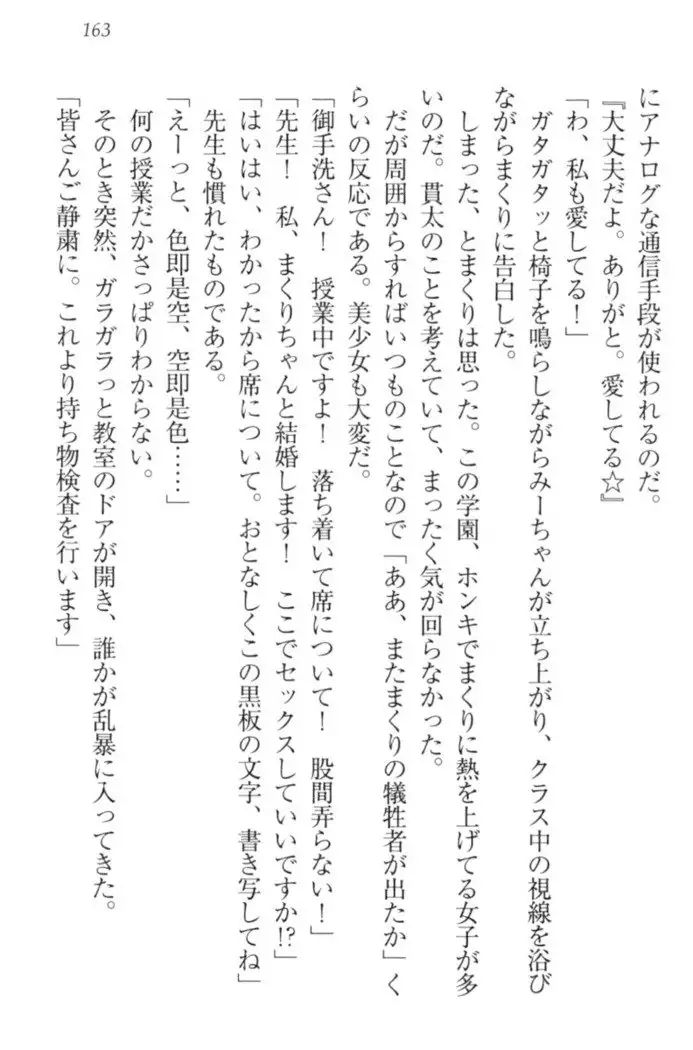 163
にアナログな通信手段が使われるのだ。
『大丈夫だよ。ありがと。愛してる☆』
「わ、私も愛してる！」
ガタガタッと椅子を鳴らしながらみーちゃんが立ち上がり、クラス中の視線を浴び
ながらまくりに告白した。
しまった、とまくりは思った。この学園、ホンキでまくりに熱を上げてる女子が多
いのだ。貫太のことを考えていて、まったく気が回らなかった。
だが周囲からすればいつものことなので「ああ、またまくりの犠牲者が出たか」く
らいの反応である。美少女も大変だ。
「御手洗さん！　授業中ですよ！　落ち着いて席について！　股間弄らない！」
「先生！　私、まくりちゃんと結婚します！　ここでセックスしていいですか!?」
「はいはい、わかったから席について。おとなしくこの黒板の文字、書き写してね」
先生も慣れたものである。
「えーっと、色即是空、空即是色……」
何の授業だかさっぱりわからない。
そのとき突然、ガラガラっと教室のドアが開き、誰かが乱暴に入ってきた。
「皆さんご静粛に。これより持ち物検査を行います」